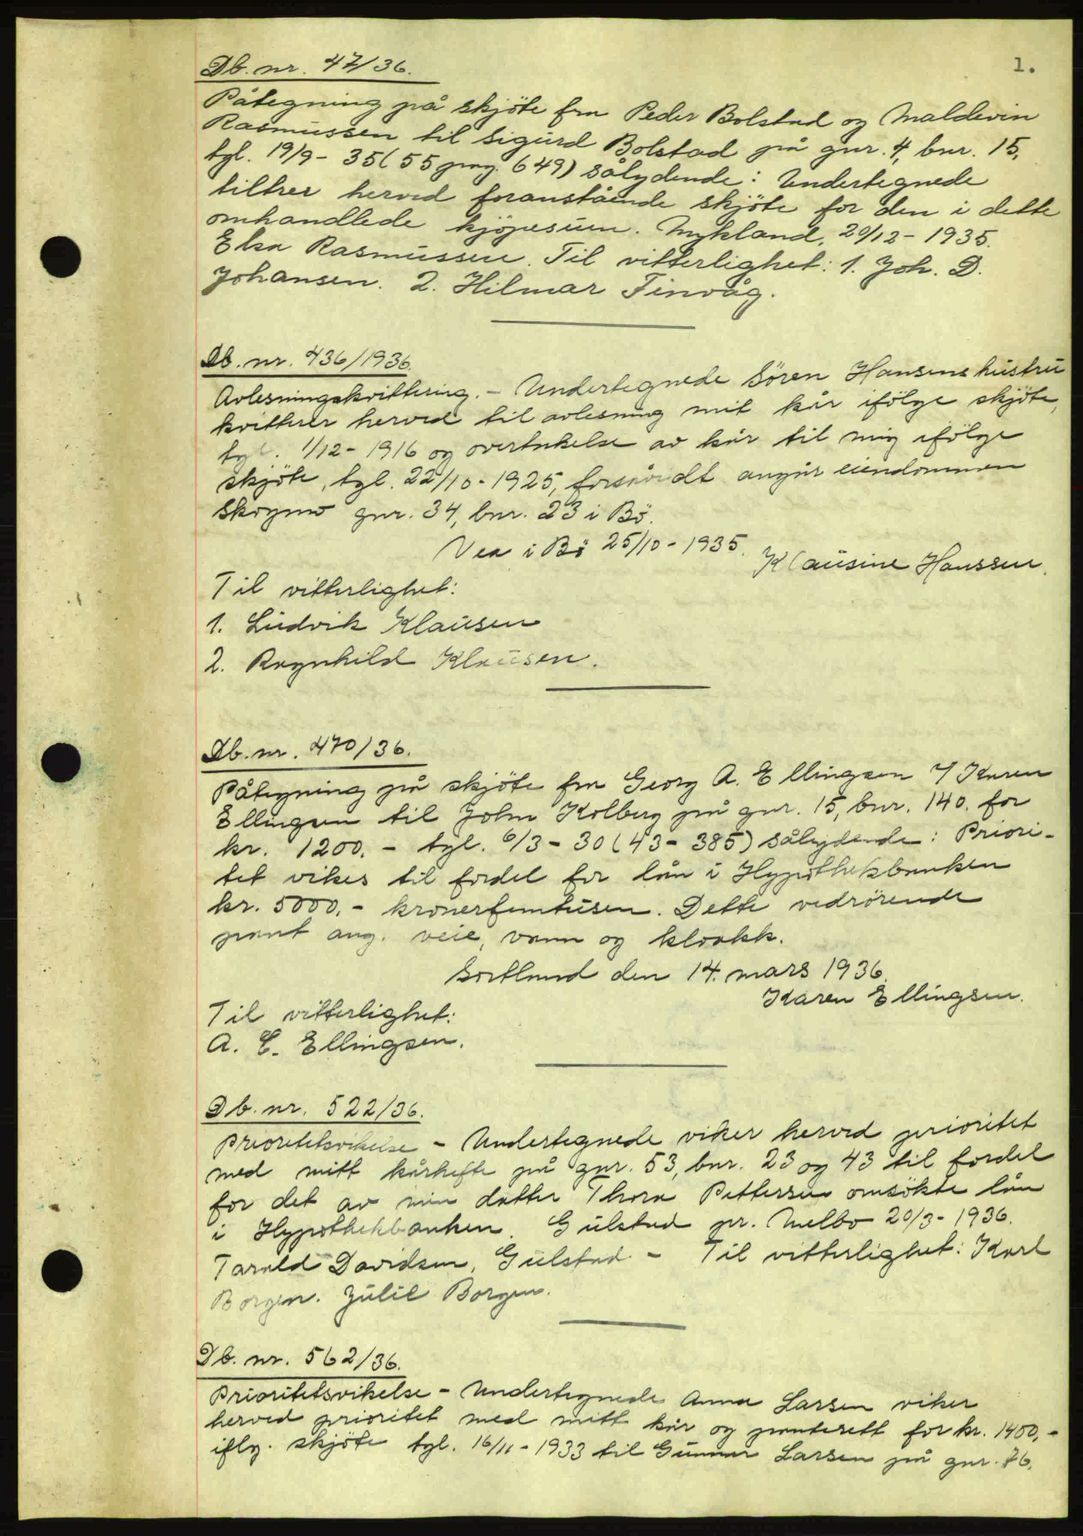 1.
Db. nr. 47/36.
Påtegning på skjöte fra Peder Bolstad og Maldevin
Rasmussen til Sigurd Bolstad på gnr. 4, bnr. 15,
tgl. 19/9- 35 (55 pag. 649) sålydende: Undertegnede
tiltrer herved foranstående skjöte for den i dette
omhandlede kjöpesum. Nykland, 20/12- 1935.
Elsa Rasmussen. Til vitterlighet: 1. Joh. D.
Johansen. 2. Hilmar Finvåg.
Db. nr. 436/1936.
Avlesningskvittering. - Undertegnede Sören Hansens hustru
kvitterer herved til avlesning mit kår ifölge skjöte,
tgl. 1/12- 1916 og overtakelse av kår til mig ifölge
skjöte, tgl. 22/10- 1925, forsåvidt angår eiendommen
Skogmo gnr. 34, bnr. 23 i Bö.
Vea i Bö 25/10- 1935.
Klausine Hanssen.
Til vitterlighet:
1. Ludvik Klausen
2. Ragnhild Klausen.
Db. nr. 470/36.
Påtegning på skjöte fra Georg A. Ellingsen 4/ Karen
Ellingsen til John Kolberg på gnr. 15, bnr. 140. for
kr. 1200.- tgl. 6/3- 30 (43- 385) sålydende: Priori-
tet vikes til fordel for lån i Hypothekbanken
kr. 5000.- kronerfemtusen. Dette vedrörende
pant ang. veie, vann og kloakk.
Sortland den 14. mars 1936.
Karen Ellingsen.
Til vitterlighet:
A. E. Ellingsen.
Db. nr. 522/36.
Prioritetsvikelse - Undertegnede viker herved prioritet
med mitt kårhefte på gnr. 53, bnr. 23 og 43 til fordel
for det av min datter Thora Pettersen omsökte lån
i Hypothekbanken. Gulstad pr. Melbo 20/3- 1936.
Tarald Davidsen, Gulstad - Til vitterlighet: Karl
Borgen. Julie Borgen.
Db. nr. 562/36.
Prioritetsvikelse - Undertegnede Anna Larsen viker
herved prioritet med mitt kår og panterett for kr. 1400,-
iflg. skjöte tgl. 16/11- 1933 til Gunnar Larsen på gnr. 76,